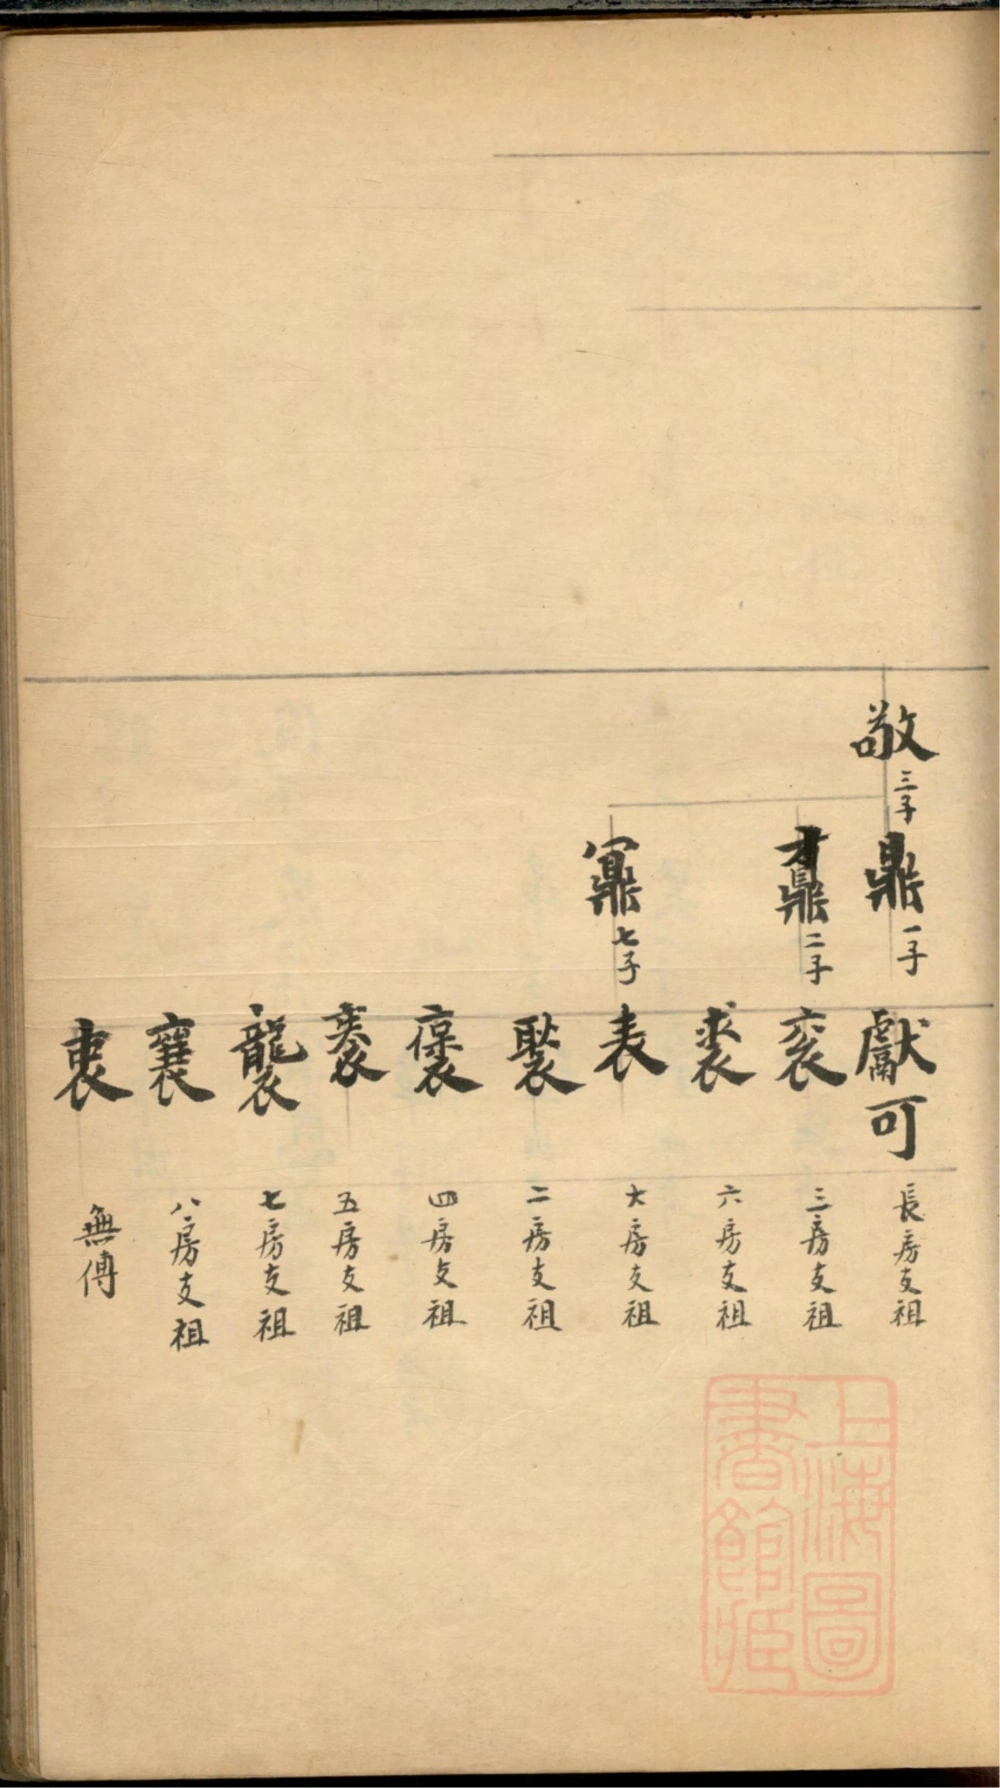 敬三子
鼎一子
獻可 長房支祖
鼒二子
衮 三房支祖
裘 六房支祖
鼏七子
表 大房支祖
褧 二房支祖
褒 四房支祖
五房支祖
襲 七房支祖
襄 八房支祖
衷 無傳
上海圖
書館藏